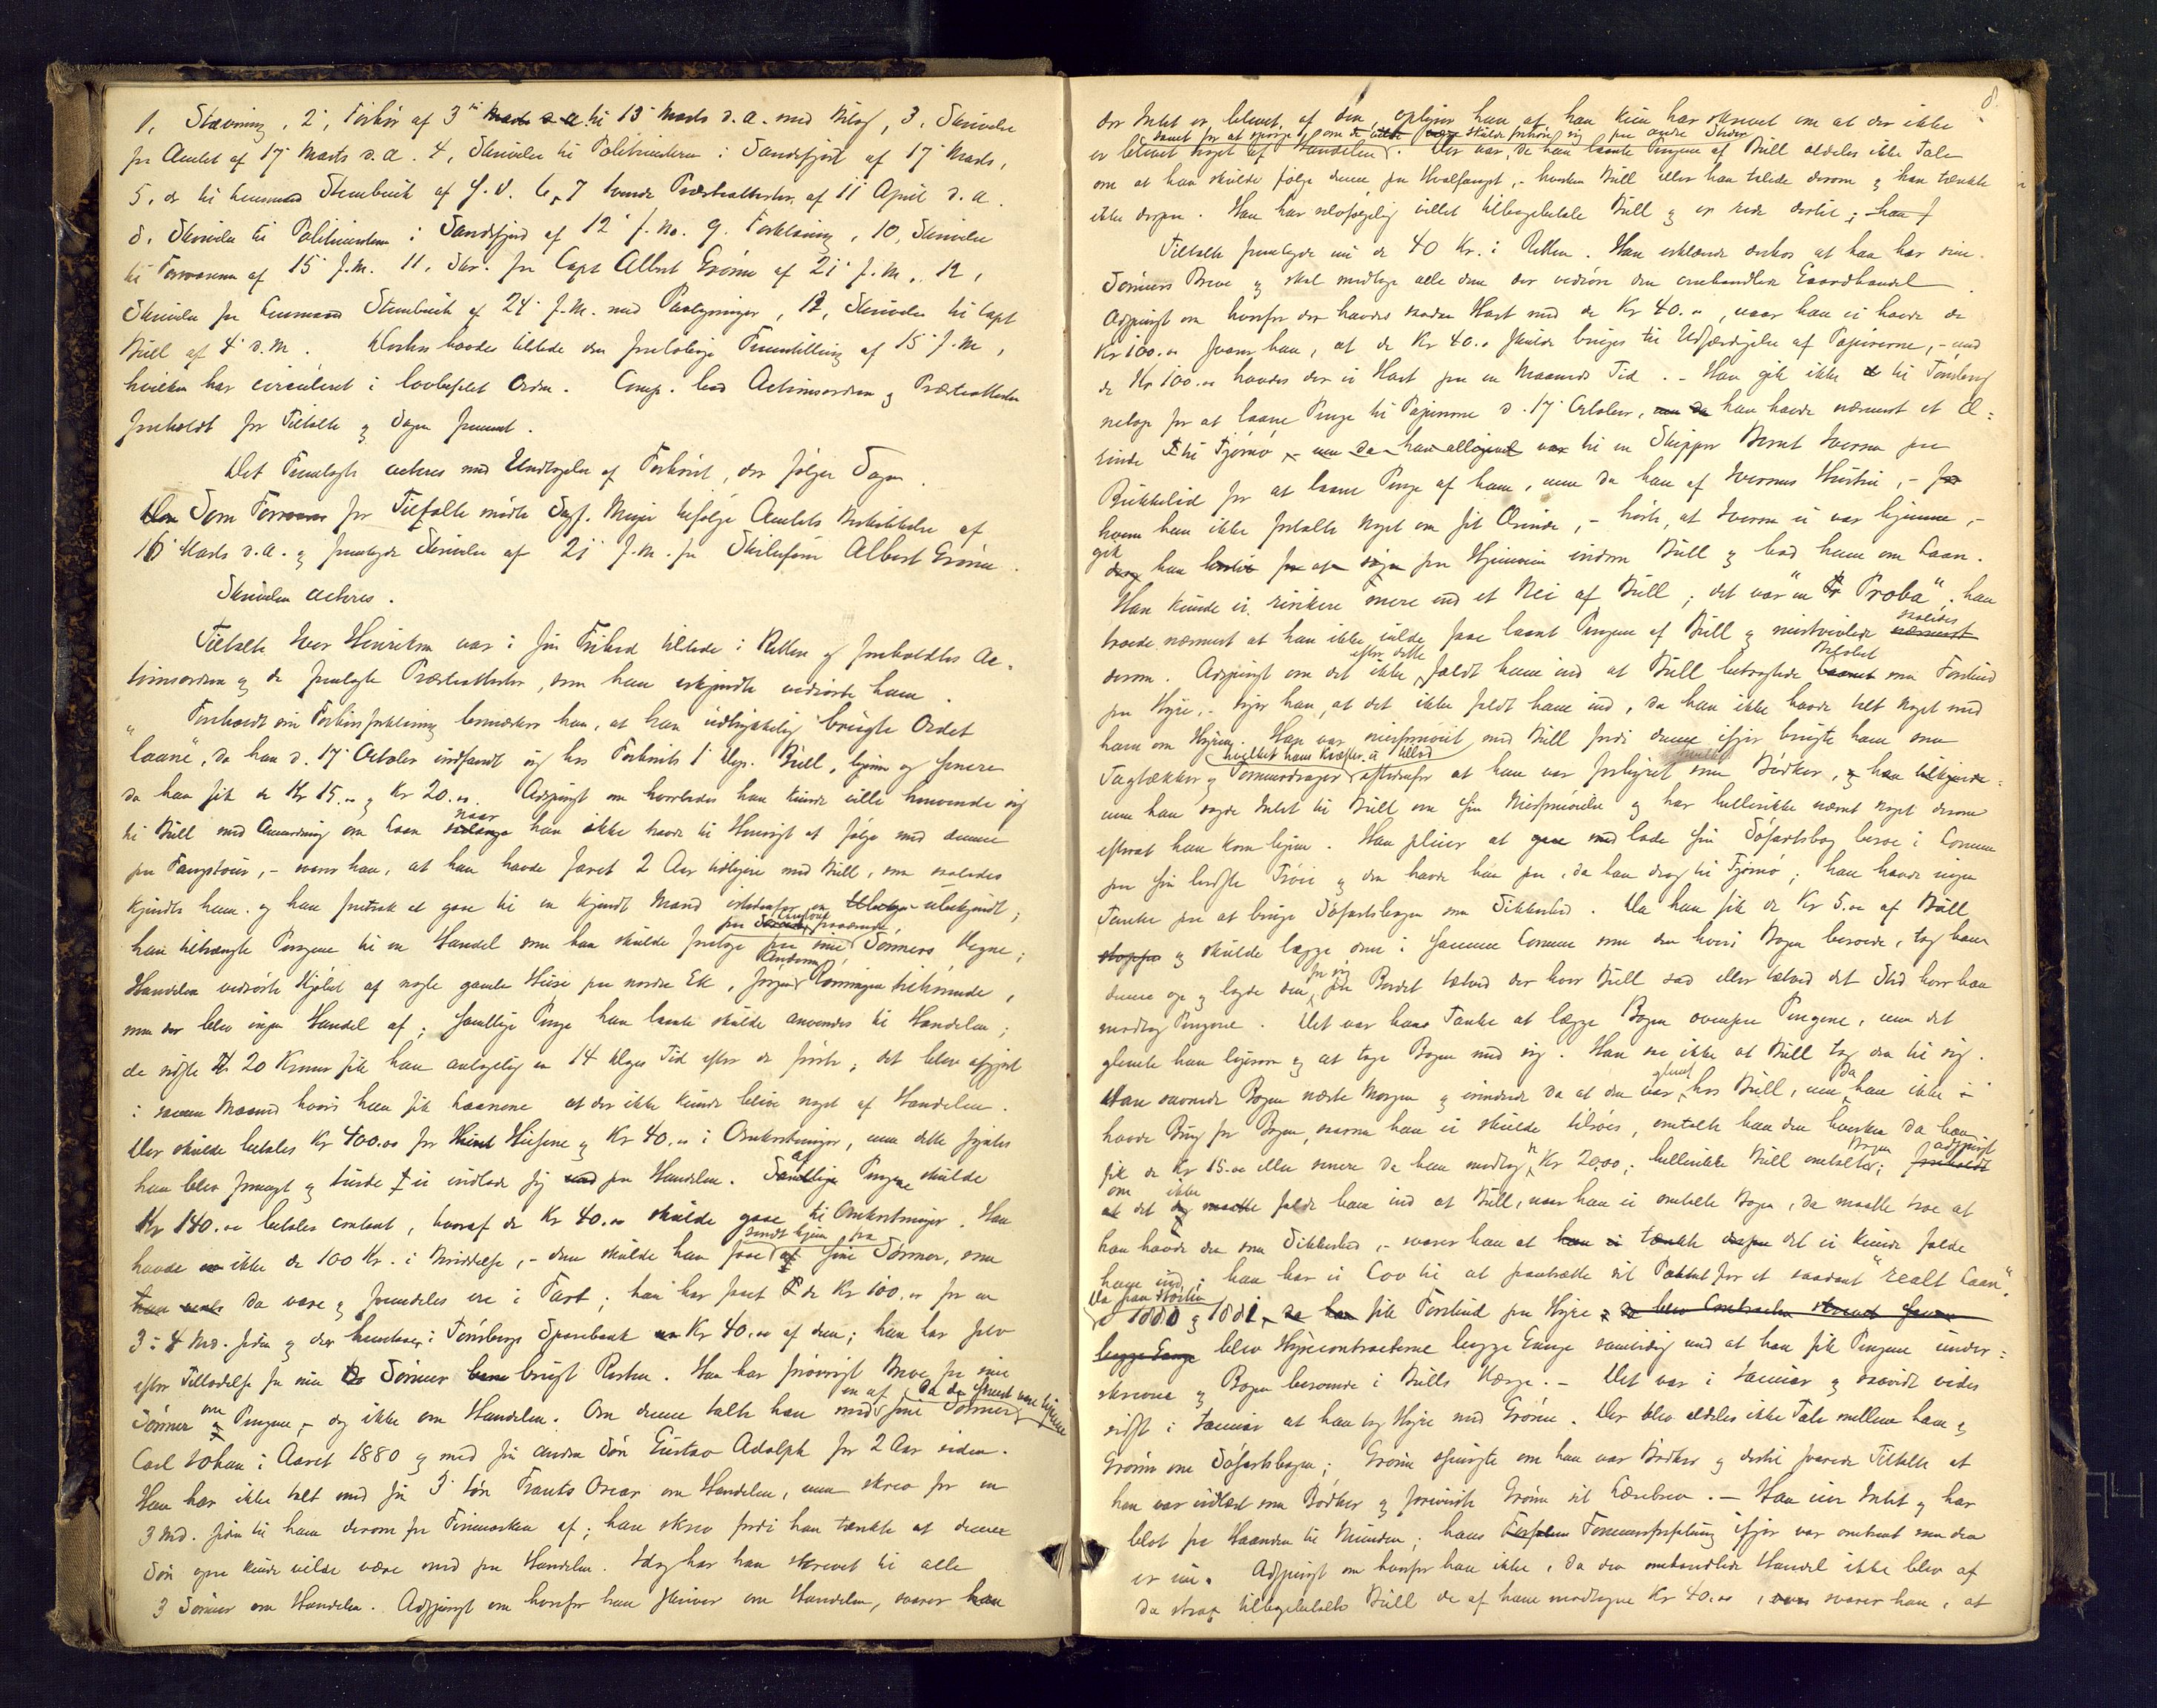 1, Stævning, 2, Forhør af 3die til 13 Marts d.a. med Bilag, 3, Skrivelse
fra Amtet af 17 Marts d.a. 4, Skrivelse til Politimesteren i Sandefjord af 17 Marts,
5, do til Lensmand Stenbeck af s.D. 6, 7 tvende Præsteattester, af 11 April d.a.
8, Skrivelse til Politimesteren i Sandefjord af 12 f.M. 9, Forklaring, 10, Skrivelse
til Forsvareren af 15 f.M. 11, Skr. fra Capt Albert Grønn af 21 f.M., 12,
Skrivelse fra Lensmand Stenbeck af 24 f.M. med Paategninger, 13, Skrivelse til Capt
Bull af 4 d.M. Derhos havdes tilstede den foreløbige Fremstilling af 15 f.M,
hvilken har circuleret i lovbefalet Orden. Comp. lod Actionsordren og Præsteattester
foreholdt for Tiltalte og Sagen fremmet.
Det Fremlagte acteres med Undtagelse af Forhøret, der følger Sagen.
Som for Tiltalte mødte Sagf. Meyer ifølge Amtets Beskikkelse af
16 Marts d.a. og fremlagde Skrivelse af 21 f.M. fra Skibsfører Albert Grønn.
Skrivelsen acteres.
Tiltalte Iver Henriksen var i sin Frihed tilstede i Retten og foreholdtes Ac-
tionsordren og de fremlagte Præsteattester, som han erkjendte vedrørte ham.
Foreholdt sin Forhørsforklaring bemærker han, at han udtrykkelig brugte Ordet
"laane", da han d. 17 October indfandt sig hos Forhørets 1 Dep. Bull, hjem og senere
da han fik de Kr 15.00 og Kr 20.00. Adspurgt om hvorledes han kunde ville henvende sig
til Bull med Anmodning om Laan naar han ikke havde til Hensigt at følge med denne
paa Fangsttour, - svarer han, at han havde faret 2 Aar tidligere med Bull, som saaledes
kjendte ham og han foretrak at gaae til en kjendt Mand istedenfor en ubekjendt;
han tiltrængte Pengene til en Handel som han skulde foretage paa sine Sønners Vegne;
Handelen vedrørte Kjøbet af nogle gamle Huse paa nordre Ek, Jørgen Andersen Rønningen tilhørende,
men der blev ingen Handel af; samtlige Penge han laante skulde anvendes til Handelen;
de sidste 20 Kroner fik han antagelig en 14 Dages Tid efter de første; det blev afgjort
i samme Maaned hvori han fik Laanene at der ikke kunde blive noget af Handelen.
Der skulde betales Kr 400.00 for Husene og Kr 40.00 i Omkostninger, men dette syntes
han blev formeget og turde ei indlade sig paa Handelen. Af Pengene skulde
Kr 140.00 betales contant, hvoraf de Kr 40.00 skulde gaae til Omkostninger. Han
havde ikke de 100 Kr. i Besiddelse, - dem skulde han faae sendt hjem fra sine Sønner, som
da vare og fremdeles ere i Fart; han har faaet de Kr 100.00 for en
3 à 4 Md. siden og der henstaar i Tønsbergs Sparebank Kr 40.00 af dem; han har selv
efter Tilladelse fra sine Sønner brugt Resten. Han har forøvrigt Breve fra sine
Sønner om Pengene, - dog ikke om Handelen. Om denne talte han med en af sine Sønner,
Carl Johan i Aaret 1880 og med sin anden Søn Gustav Adolph for 2 Aar siden.
Han har ikke talt med sin 3 Søn Frants Oscar om Handelen, men skrev for en
3 Md. siden til ham derom fra Finmarken af; han skrev fordi han tænkte at denne
Søn ogsaa kunde ville være med paa Handelen. Idag har han skrevet til alle
3 Sønner om Handelen. Adspurgt om hvorfor han skriver om Handelen, svarer han
8
der Intet er blevet af den, oplyser han at han kun har skrevet om at der ikke
samt for at spørge om de skulde forhøre sig paa andre Steder
er blevet noget af Handelen. Der var, da han laante Pengene af Bull aldeles ikke Tale
om at han skulde følge denne paa Hvalfangst, - hverken Bull eller han talede derom og han tænkte
ikke derpaa. Han har selvfølgelig villet tilbagebetale Bull og er rede dertil;
Tiltalte fremlagde nu de 40 Kr. i Retten. Han erklærede derhos at han har sine
Sønners Breve og skal medtage alle dem der vedrøre den omhandlede Gaardhandel.
Adspurgt om hvorfor der havdes saadan Hast med de Kr 40.00, naar han ei havde de
Kr 100.00 svarer han, at de Kr 40.00 skulde bruges til Udfærdigelse af Papirerne, - med
de Kr 100.00 havdes der ei Hast paa en Maaneds Tid. - Han gik ikke til Tønsberg
netop for at laane Penge til Papirerne d. 17 October, han havde nærmest et Æ-
rinde til Tjømø til en Skipper Bernt Iversen paa
Bukkelid for at laane Penge af ham, men da han af Iversens Hustru, -
hvem han ikke fortalte noget om sit Ærinde, - hørte, at Iversen ei var hjemme, -
gik han paa Hjemveien indom Bull og bad ham om Laan.
Han kunde ei risikere mere end et Nei af Bull; det var "en Proba". Han
troede nærmest at han ikke vilde faae laant Pengene af Bull og mistvivlede saaledes
derom. Adspurgt om det efter dette ikke faldt ham ind at Bull betragtede Beløbet som Forskud
paa Hyre, - siger han, at det ikke faldt ham ind, da han ikke havde talt noget med
ham om Hyring. Han var misfornøiet med Bull fordi denne ifjor brugte ham som
hvilket hans Kræfter ei tillod
Tagtækker og Tømmerdrager istedenfor at han var forhyret som Bødker,
men han sagde Intet til Bull om sin Misfornøielse og har hellerikke nævnt noget derom
efterat han kom hjem. Han pleier at lade sin Søfartsbog beroe i Lommen
paa sin bedste Trøie og den havde han paa, da han drog til Tjømø; han havde ingen
Tanke paa at bruge Søfartsbogen som Sikkerhed. Da han fik de Kr 5.00 af Bull
og skulde lægge dem i samme Lomme som den hvori Bogen beroede, tog han
denne op og lagde den fra sig paa Bordet tætved der hvor Bull sad eller tætved det Sted hvor han
modtog Pengene. Det var hans Tanke at lægge Bogen ovenpaa Pengene, men det
glemte han ligesom og at tage Bogen med sig. Han saa ikke at Bull tog den til sig.
Han savnede Bogen næste Morgen og erindrede da at den var glemt hos Bull, men da han ikke
havde Brug for Bogen, saasom han ei skulde tilsøes, omtalte han den hverken da han
fik de Kr 15.00 eller senere da han modtog Kr 20.00; hellerikke Bull omtalte Bogen; adspurgt
om det ikke falde ham ind at Bull, naar han ei omtalte Bogen, da maatte troe at
han havde den som Sikkerhed, - svarer han at det ei kunde falde
ham ind; han har ei Lov til at pantsætte sit Patent for et saadant "realt Laan".
Da han Høsten 1880 og 1881 fik Forskud paa Hyre
blev Hyrecontracterne begge Gange samtidig med at han fik Pengene under-
skrevne og Bogen beroende i Bulls Værge. - Det var i Januar og saavidt vides
sidst i Januar at han tog Hyre med Grønn. Der blev aldeles ikke Tale mellem ham og
Grønn om Søfartsbogen; Grønn spurgte om han var Bødker og dertil svarede Tiltalte at
han var udlært som Bødker og foreviste Grønn sit Lærebrev. - Han eier Intet og har
blot fra Haanden til Munden; hans Formuesforfatning ifjor var omtrent som den
er nu. Adspurgt om hvorfor han ikke, da den omhandlede Handel ikke blev af
da strax tilbagebetalte Bull de af ham modtagne Kr 40.00, svarer han, at